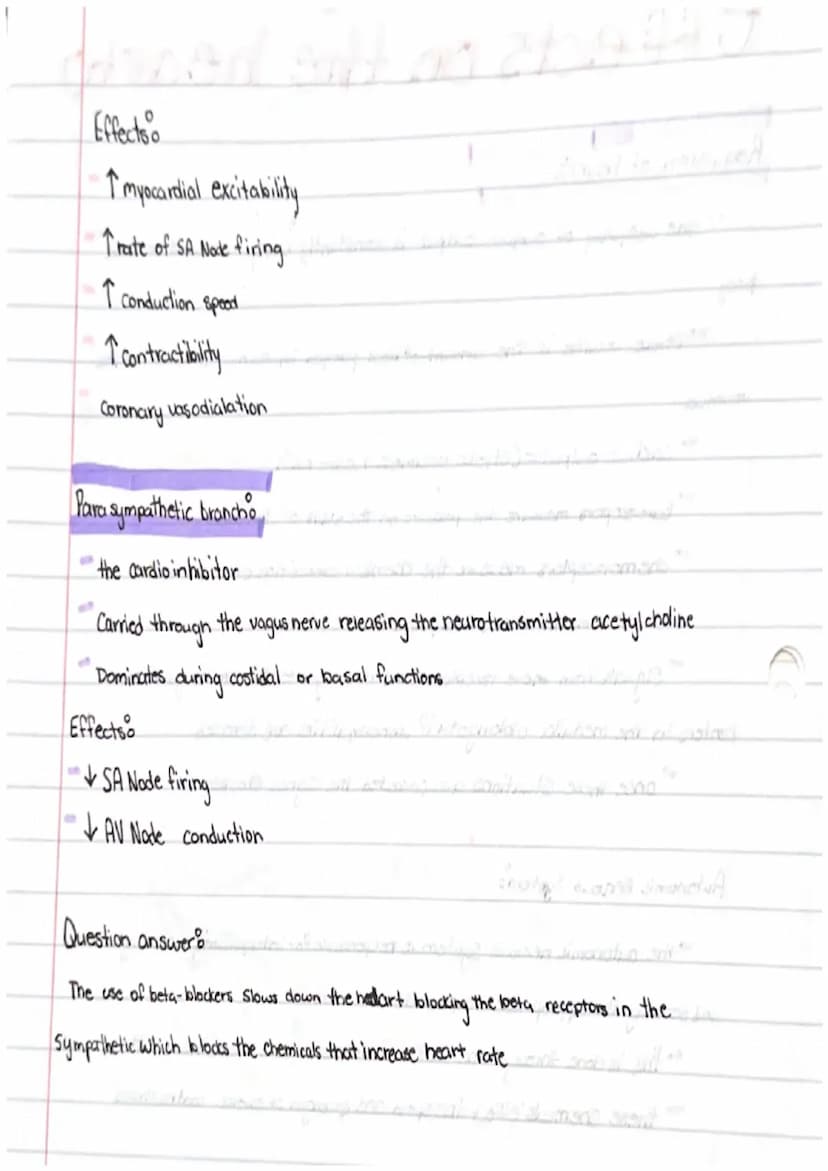 Effects:
↑ myocardial excitability
↑ rate of SA Node firing
↑ conduction speed
↑ contractibility
Coronary vasodialation
Parasympathetic branch:
the cardioinhibitor
Carried through the vagus nerve releasing the neurotransmitter acetylcholine
Dominates during costidal or basal functions
Effects:
↓ SA Node firing
↓ AV Node conduction
Question answer:
The use of beta-blockers slows down the heart blocking the beta receptors in the
Sympathetic which blocks the chemicals that increase heart rate